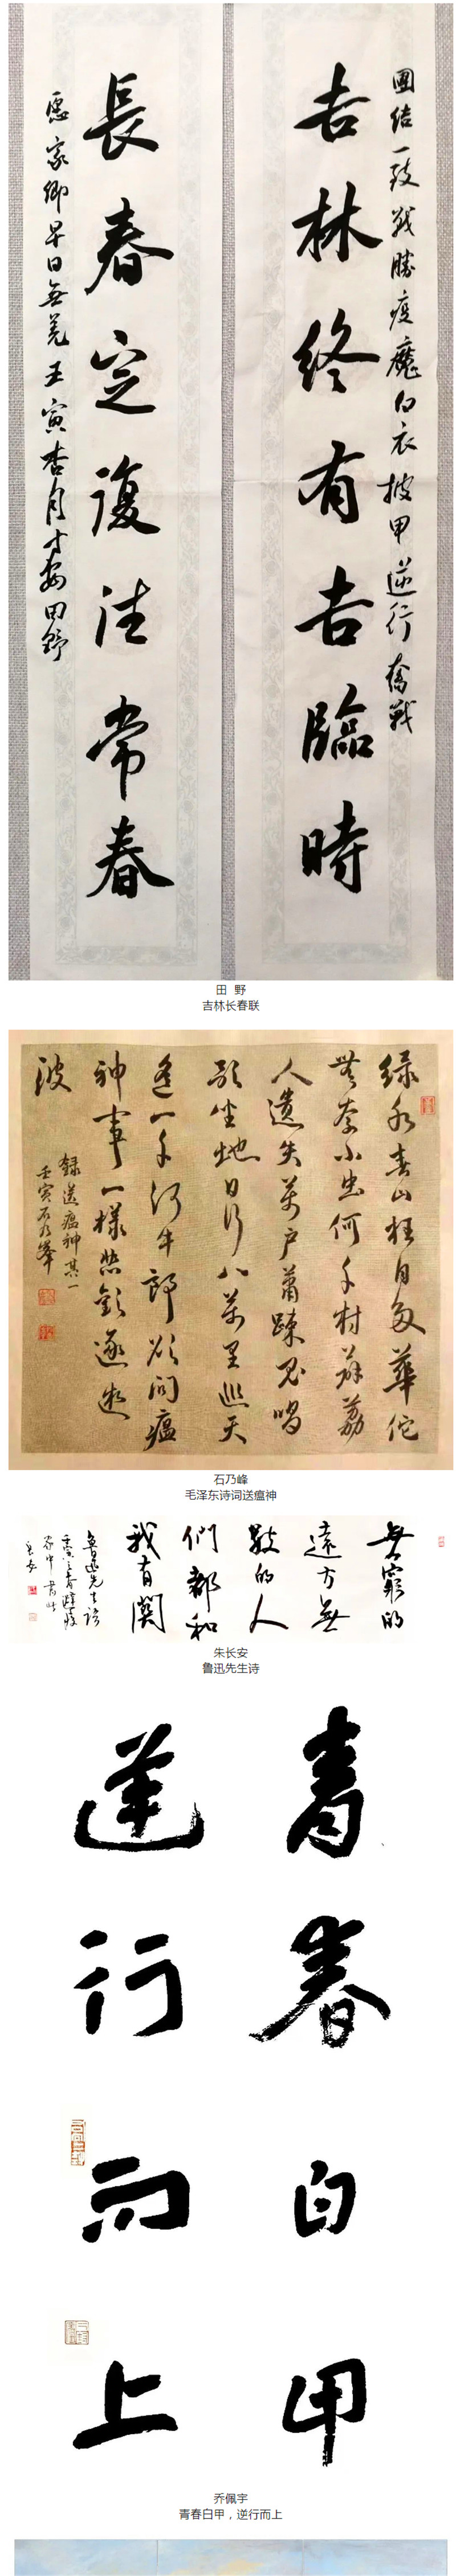 團结一致战勝疫魔白衣披甲逆行奮戰
吉林终有吉臨時
長春定復往常春
愿家鄉早日無恙壬寅杏月田野
田 野
吉林长春联
绿水春山枉自多華佗
無奈小虫何千村薜荔
人遗失萬户蕭疎鬼唱
歌坐地日行八萬里巡天
遥一千河牛郎欲问瘟
神事一樣悲歡逐逝
波
録送瘟神其一
壬寅石乃峯
石乃峰
毛泽东诗词送瘟神
無窮的
遠方無
數的人
們都和
我有関
魯迅先生語
壬寅之春避疫
家中書此
長安
朱长安
鲁迅先生诗
青春白甲
逆行而上
乔佩宇
青春白甲，逆行而上